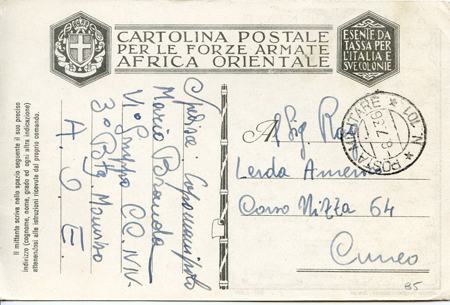 CARTOLINA POSTALE
PER LE FORZE ARMATE
AFRICA ORIENTALE
ESENTE DA
TASSA PER
L'ITALIA E
SVE COLONIE
Il mittente scriva nello spazio seguente il suo preciso
indirizzo (cognome, nome, grado ed ogni altra indicazione)
attenendosi alle istruzioni ricevute dal proprio comando.
Spedisce Capomanipolo
Mario Branda
VI° Gruppo CC. NN.
3° Btg.
A. O. E.
POSTA MILITARE
Al Sig. Rag.
Lerda
Corso Nizza 64
Cuneo
85